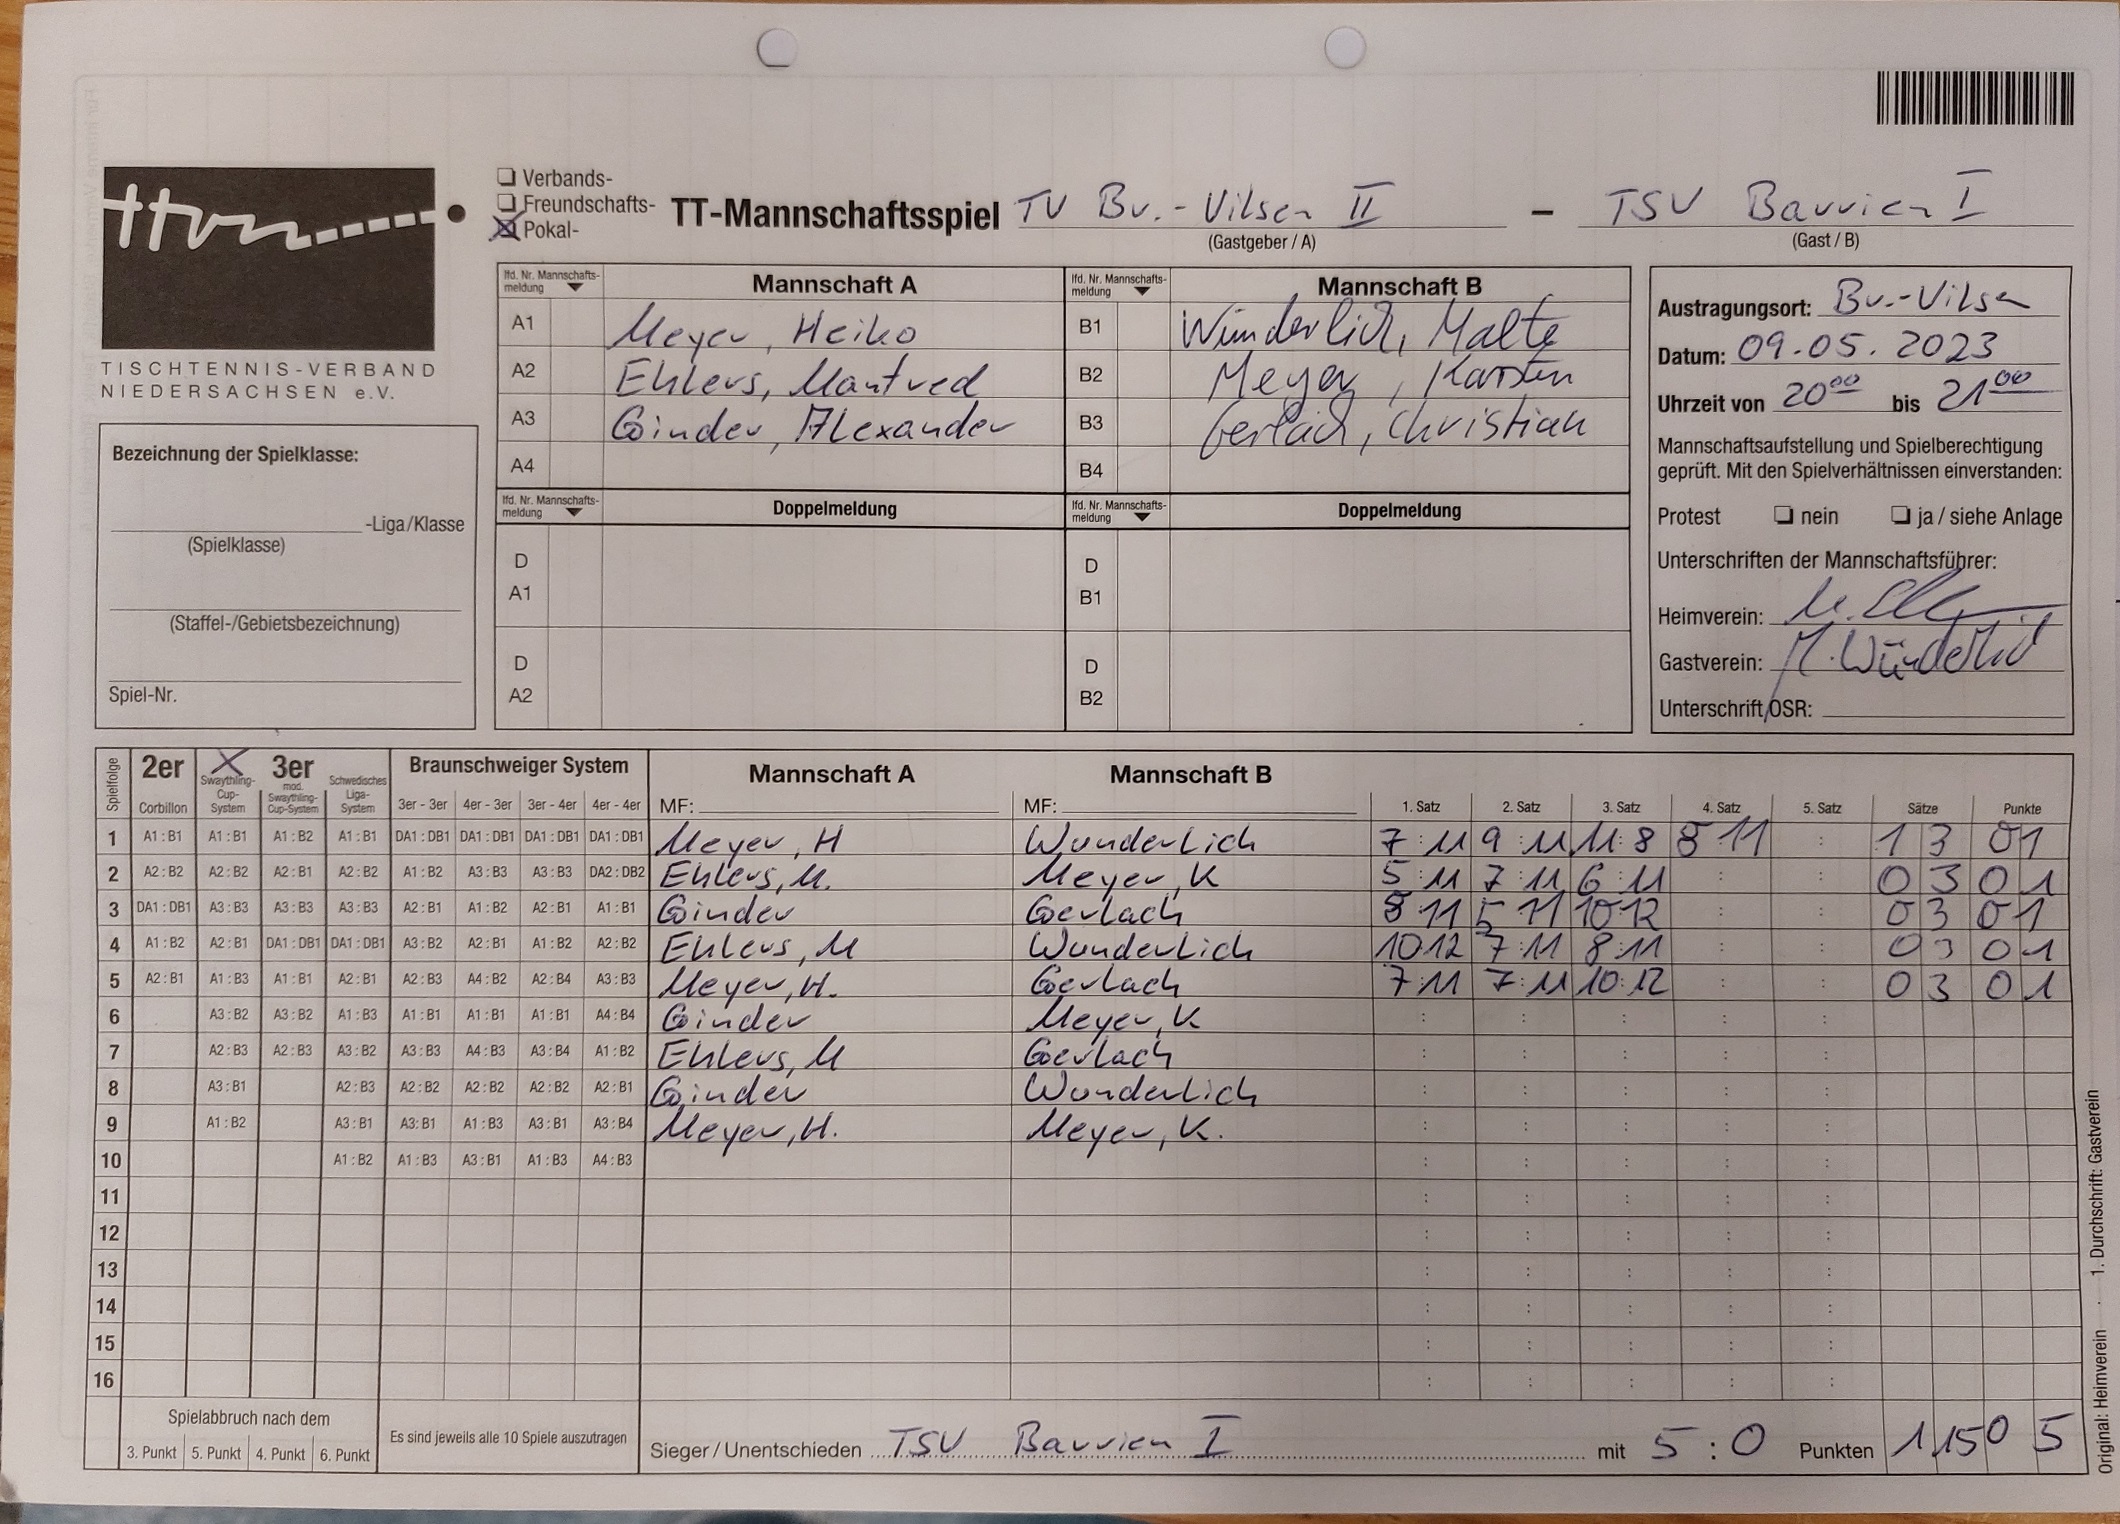 ttvn
TISCHTENNIS-VERBAND
NIEDERSACHSEN e.V.
Verbands-
Freundschafts-
Pokal-
TT-Mannschaftsspiel TV Br.-Vilsen II – TSV Barrien I
(Gastgeber / A) (Gast / B)
lfd. Nr. Mannschafts-meldung Mannschaft A lfd. Nr. Mannschafts-meldung Mannschaft B
A1 Meyer, Heiko B1 Wünderlich, Malte
A2 Ehlers, Manfred B2 Meyer, Karsten
A3 Ginder, Alexander B3 Gerlach, Christian
A4 B4
lfd. Nr. Mannschafts-meldung Doppelmeldung lfd. Nr. Mannschafts-meldung Doppelmeldung
D D
A1 B1
D D
A2 B2
Austragungsort: Br.-Vilsen
Datum: 09.05.2023
Uhrzeit von 20 00 bis 21 00
Mannschaftsaufstellung und Spielberechtigung
geprüft. Mit den Spielverhältnissen einverstanden:
Protest nein ja / siehe Anlage
Unterschriften der Mannschaftsführer:
Heimverein:
Gastverein: M. Wünderlich
Unterschrift OSR:
Bezeichnung der Spielklasse:
-Liga/Klasse
(Spielklasse)
(Staffel-/Gebietsbezeichnung)
Spiel-Nr.
Spielfolge 2er X 3er Braunschweiger System Mannschaft A Mannschaft B
Corbillon Swaythling-Cup-System mod. Swaythling-Cup-System Schwedisches Liga-System 3er - 3er 4er - 3er 3er - 4er 4er - 4er MF: MF: 1. Satz 2. Satz 3. Satz 4. Satz 5. Satz Sätze Punkte
1 A1 : B1 A1 : B1 A1 : B2 A1 : B1 DA1 : DB1 DA1 : DB1 DA1 : DB1 DA1 : DB1 Meyer, H Wunderlich 7:11 9:11 11:8 8 11 : 1 3 0 1
2 A2 : B2 A2 : B2 A2 : B1 A2 : B2 A1 : B2 A3 : B3 A3 : B3 DA2 : DB2 Ehlers, M. Meyer, K 5:11 7:11 6:11 : : 0 3 0 1
3 DA1 : DB1 A3 : B3 A3 : B3 A3 : B3 A2 : B1 A1 : B2 A2 : B1 A1 : B1 Ginder Gerlach 8 11 5 11 10 12 : : 0 3 0 1
4 A1 : B2 A2 : B1 DA1 : DB1 DA1 : DB1 A3 : B2 A2 : B1 A1 : B2 A2 : B2 Ehlers, M Wunderlich 10 12 7:11 8:11 : : 0 3 0 1
5 A2 : B1 A1 : B3 A1 : B1 A2 : B1 A2 : B3 A4 : B2 A2 : B4 A3 : B3 Meyer, H. Gerlach 7:11 7:11 10:12 : : 0 3 0 1
6 A3 : B2 A3 : B2 A1 : B3 A1 : B1 A1 : B1 A1 : B1 A4 : B4 Ginder Meyer, K : : : : :
7 A2 : B3 A2 : B3 A3 : B2 A3 : B3 A4 : B3 A3 : B4 A1 : B2 Ehlers, M Gerlach : : : : :
8 A3 : B1 A2 : B3 A2 : B2 A2 : B2 A2 : B2 A2 : B1 Ginder Wunderlich : : : : :
9 A1 : B2 A3 : B1 A3 : B1 A1 : B3 A3 : B1 A3 : B4 Meyer, H. Meyer, K. : : : : :
10 A1 : B2 A1 : B3 A3 : B1 A1 : B3 A4 : B3 : : : : :
11 : : : : :
12 : : : : :
13 : : : : :
14 : : : : :
15 : : : : :
16 : : : : :
Spielabbruch nach dem
3. Punkt 5. Punkt 4. Punkt 6. Punkt Es sind jeweils alle 10 Spiele auszutragen Sieger / Unentschieden TSV Barrien I mit 5 : 0 Punkten 1 15 0 5
Original: Heimverein · 1. Durchschrift: Gastverein